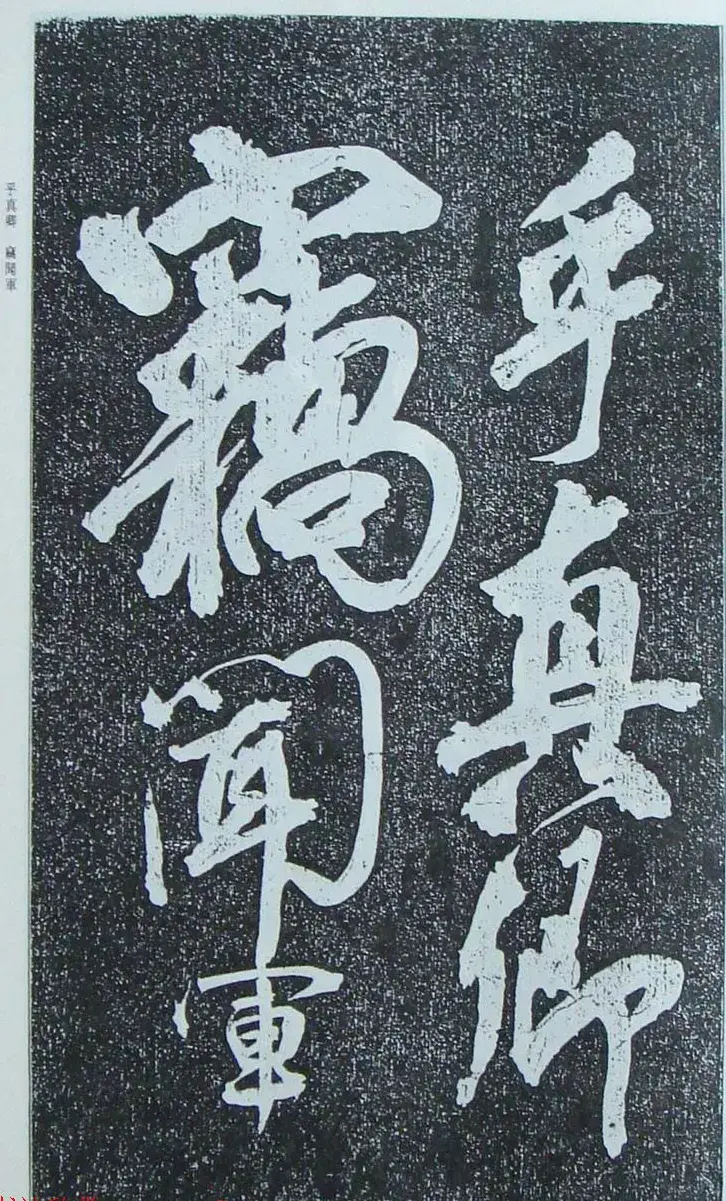 乎真卿
竊聞軍
乎真卿 竊聞軍